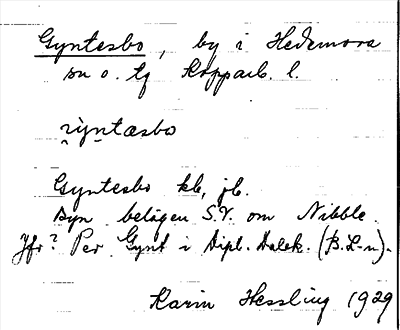 Gyntesbo, by i Hedemora
sn o. tg Kopparb. l.
jyntæsbo
Gyntesbo kb, jb.
Byn belägen S.V. om Nibble.
Jfr? Per Gynt i Dipl. Dalek. (B.L-n).
Karin Hessling 1929